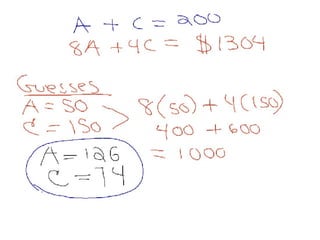 A + C = 200
8A + 4C = $1304
Guesses
A = 50
C = 150
8(50) + 4(150)
400 + 600
= 1000
A = 126
C = 74